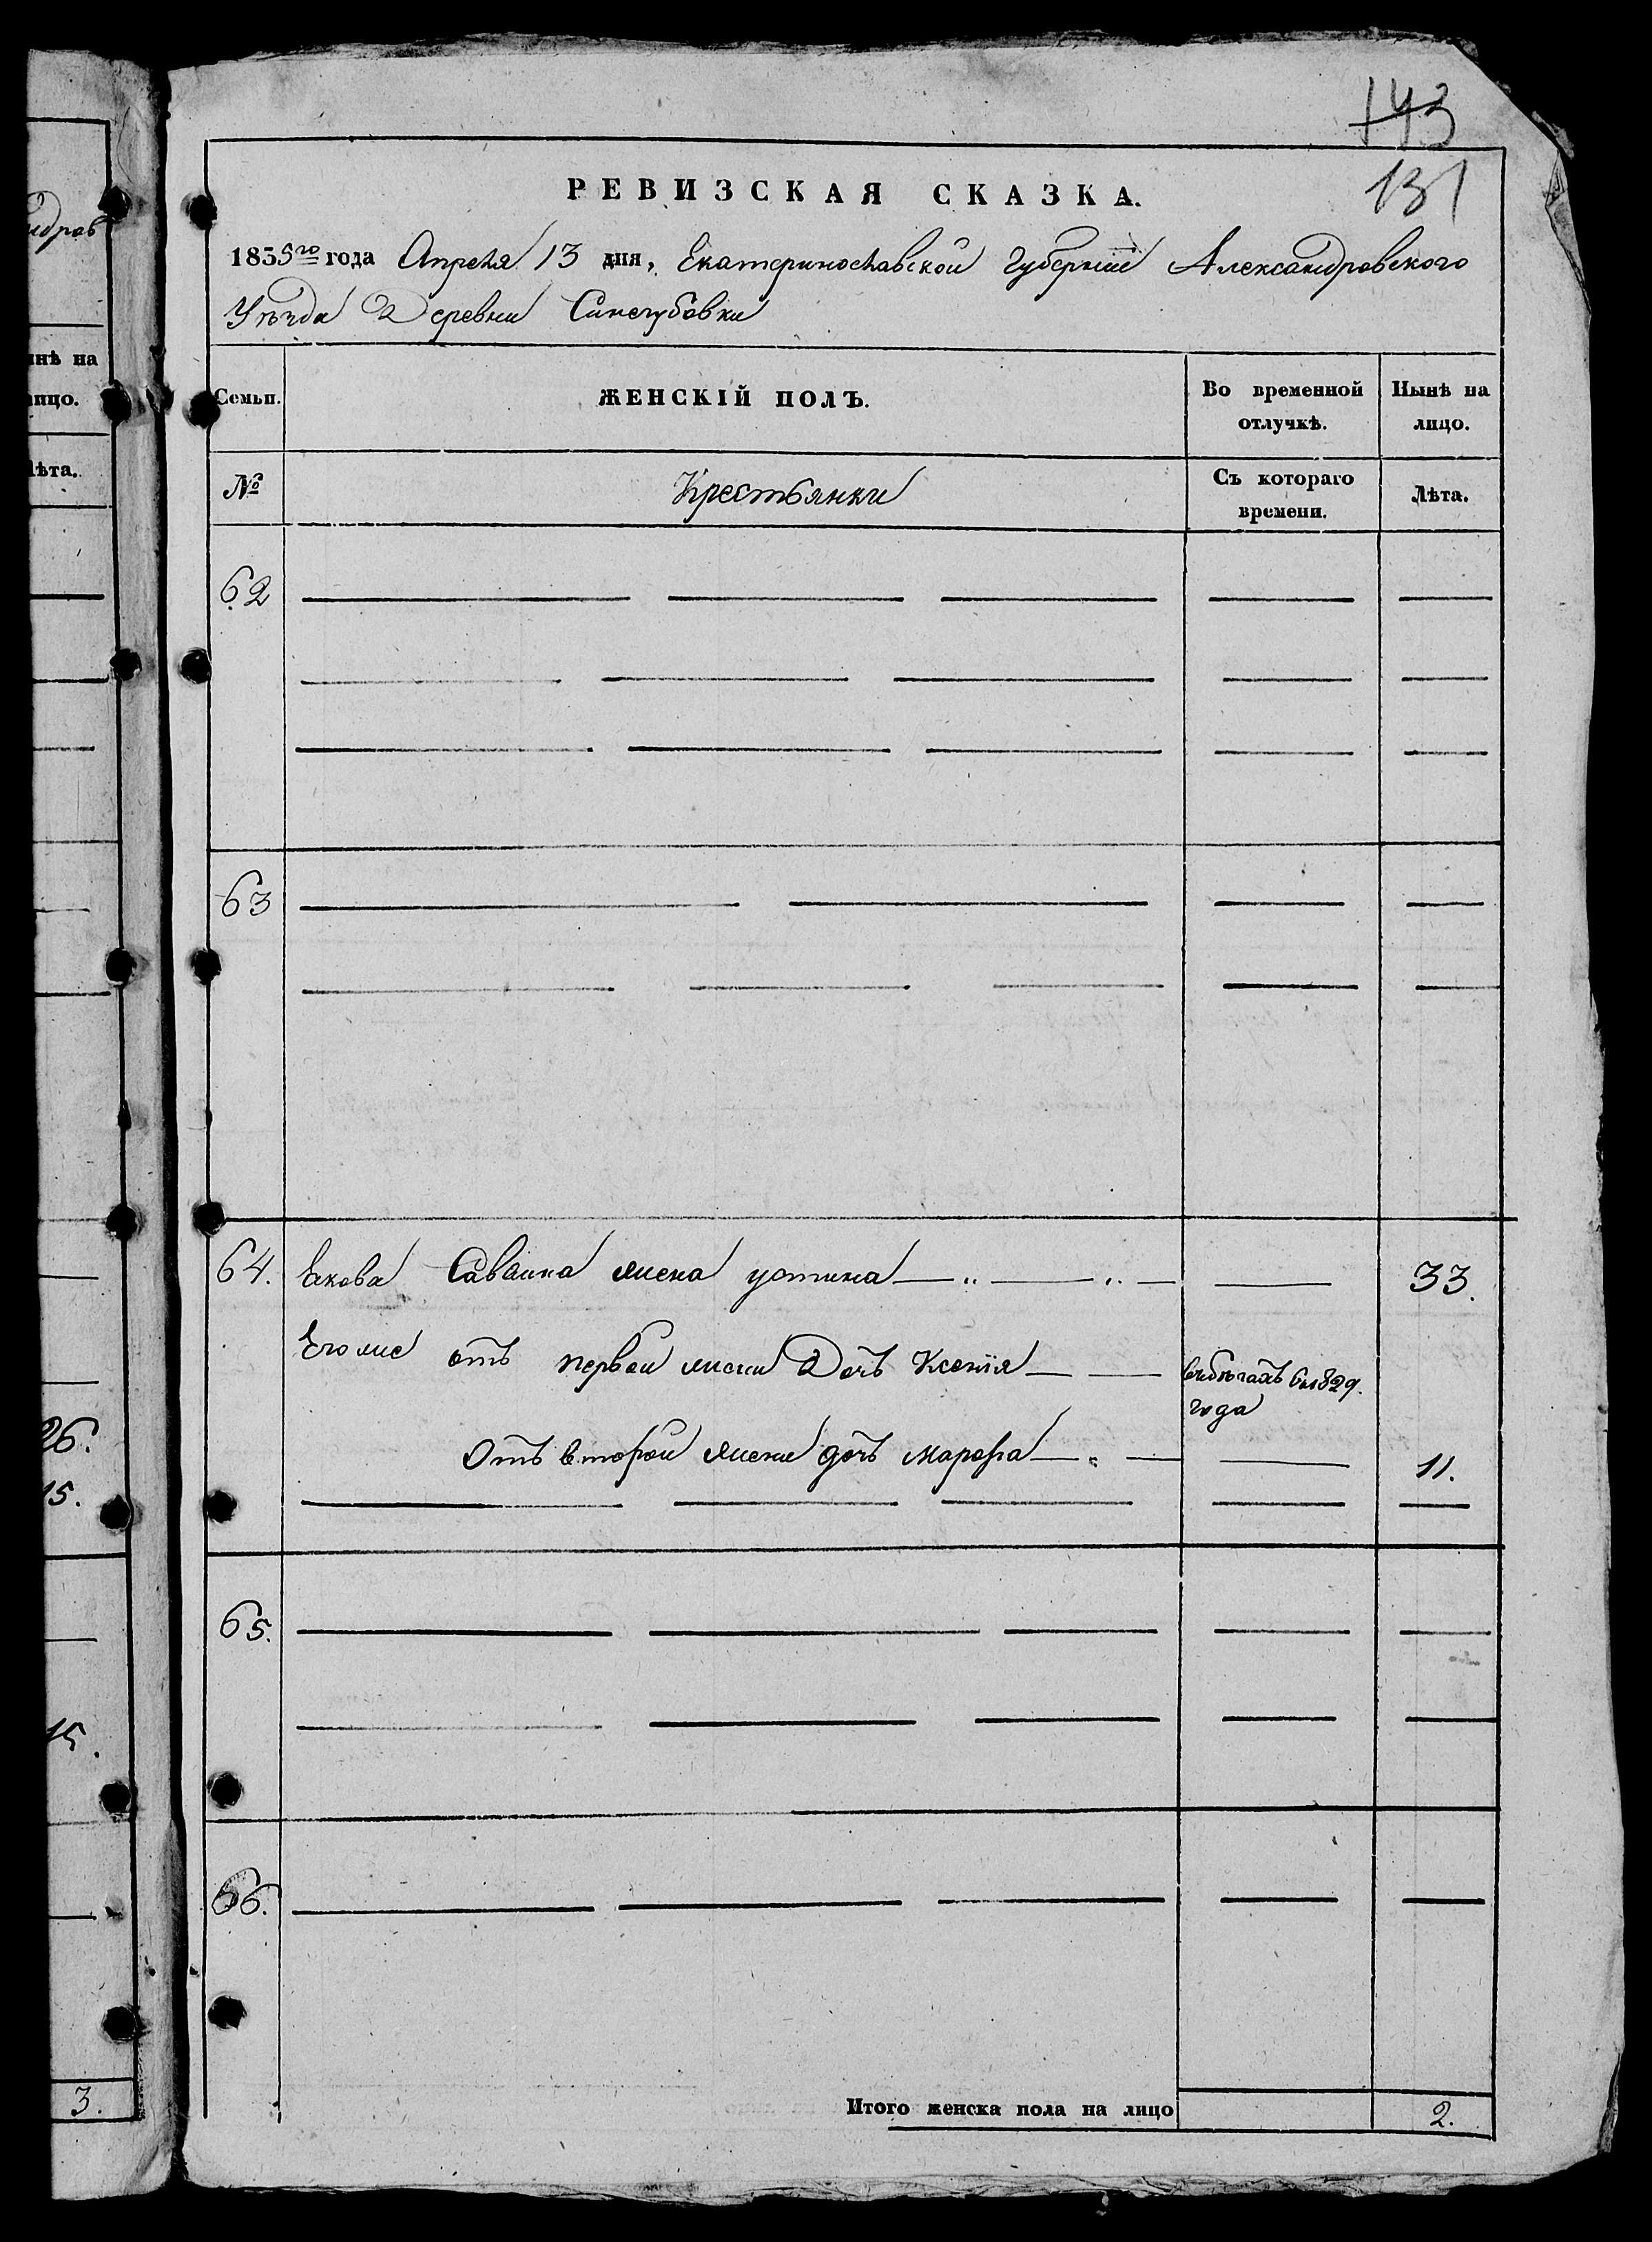 143
131
РЕВИЗСКАЯ СКАЗКА.
1835го года Апреля 13 дня, Екатеринославской Губернии Александровского
Уезда Деревни Синегубовки
Семьи. ЖЕНСКІЙ ПОЛЪ. Во временной отлучкѣ. Нынѣ на лицо.
№ Крестьянки Съ котораго времени. Лѣта.
62
63
64. Якова Саввина жена устина 33.
Его же отъ первой жены Дочъ Ксенія въ бѣгахъ 1829. года
Отъ второй жены дочъ марфа 11.
65.
66.
Итого женска пола на лицо 2.
ндров
нѣ на
ицо.
ѣта.
26.
15.
15.
3.